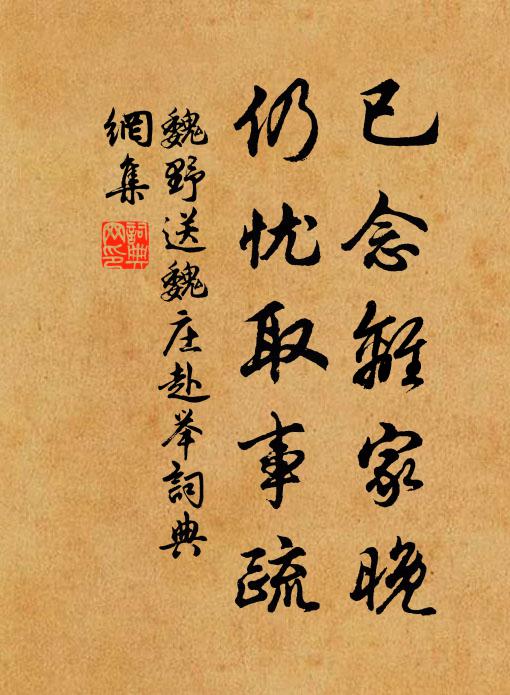 已念離家晚
仍忧取事疏
魏野送魏庄赴举詞典
網集
詞典
网印